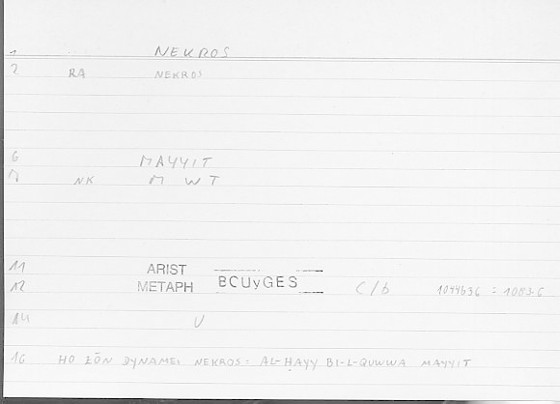 1 NEKROS
2 RA NEKROS
6 MAYYIT
7 NK M W T
11 ARIST
12 METAPH BCUyGES C/b 1044b36 = 1053.6
14 V
16 HO ZŌN DYNAMEI NEKROS: AL-ḤAYY BI-L-QUWWA MAYYIT